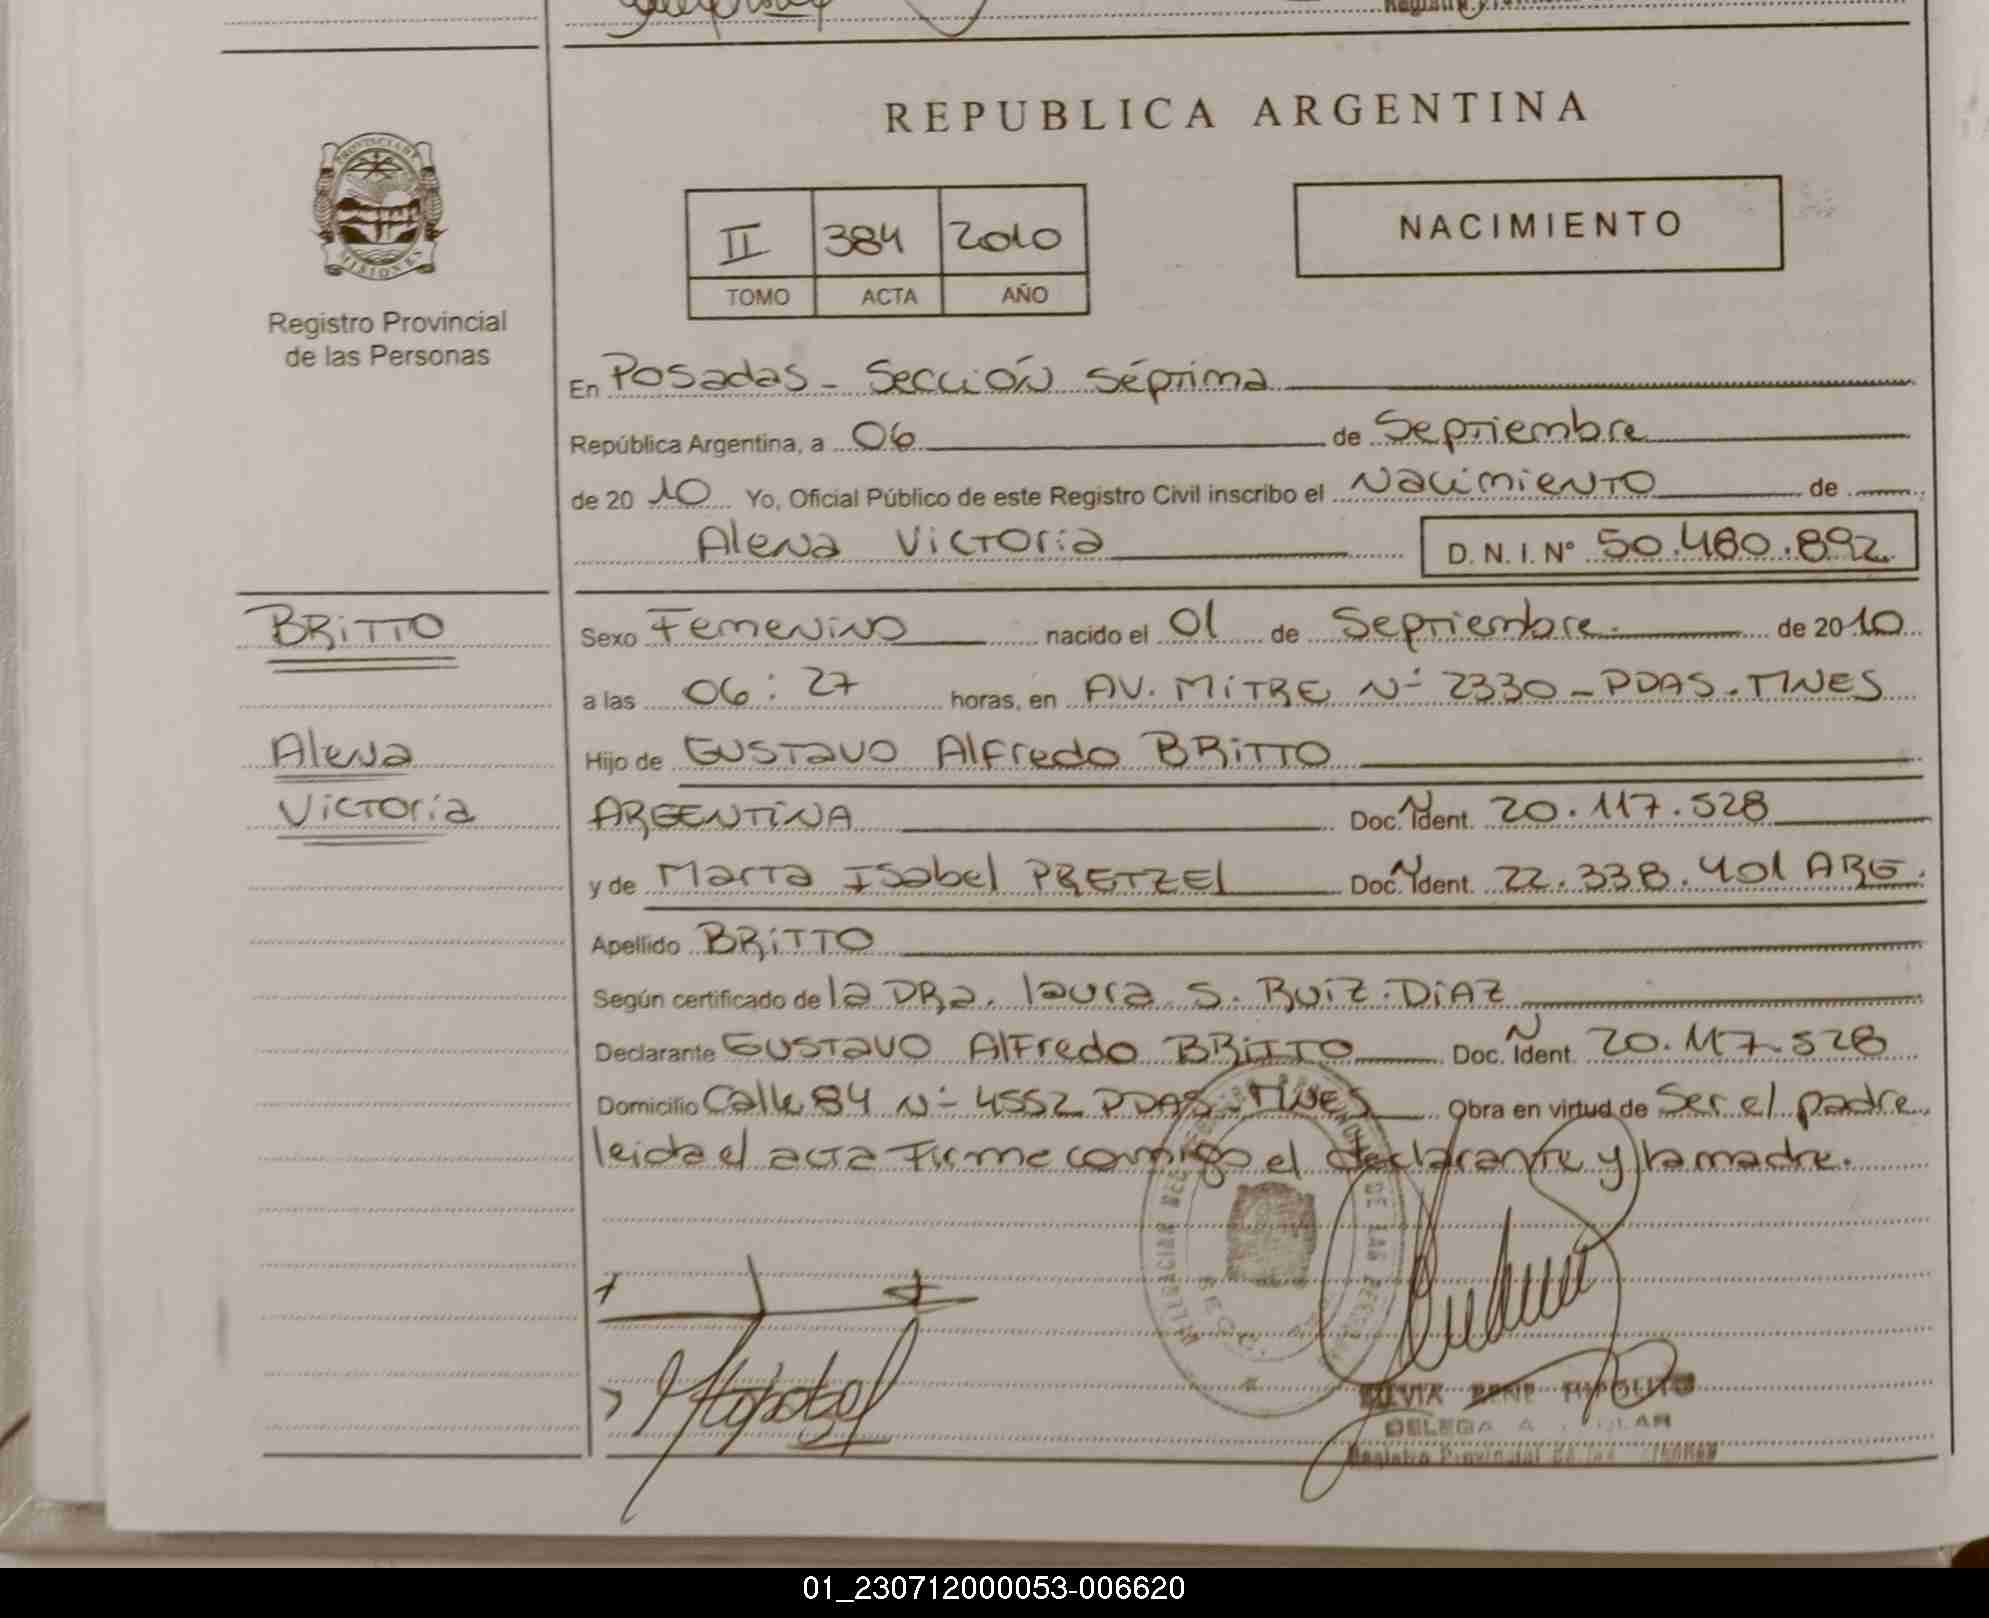 REPUBLICA ARGENTINA
PROVINCIA DE
MISIONES
Registro Provincial
de las Personas
II 384 2010
TOMO ACTA AÑO
NACIMIENTO
En Posadas - Sección Séptima
República Argentina, a 06 de Septiembre
de 20 10 Yo, Oficial Público de este Registro Civil inscribo el Nacimiento de
Alena Victoria D. N. I. Nº 50.480.892
BRITTO
Alena
Victoria
Sexo Femenino nacido el 01 de Septiembre. de 20 10
a las 06:27 horas, en AV. MITRE Nº 2330 - PDAS. MNES
Hijo de GUSTAVO Alfredo BRITTO
ARGENTINA Doc. Ident. 20.117.528
y de Marta Isabel PRETZEL Doc. Ident. 22.338.401 ARG.
Apellido BRITTO
Según certificado de la DRa. laura S. RUIZ DIAZ
Declarante GUSTAVO Alfredo BRITTO Doc. Ident. 20.117.528
Domicilio Calle 84 Nº 4552 PDAS - MNES Obra en virtud de Ser el padre
leida el acta firme conmigo el declarante y la madre.
DE LAS
Registro Provincial de las
01_230712000053-006620